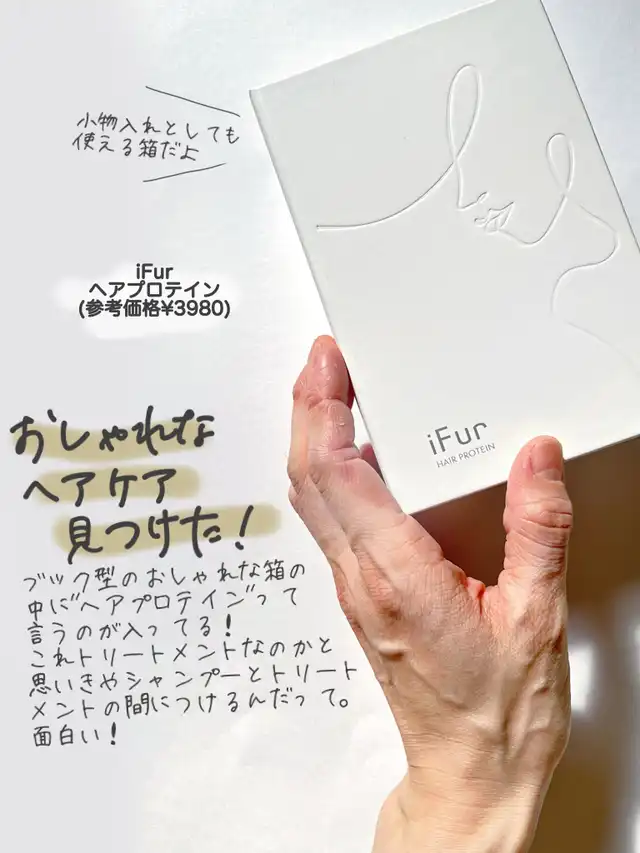 小物入れとしても
使える箱だよ
iFur
ヘアプロテイン
(参考価格¥3980)
おしゃれな
ヘアケア
見つけた!
ブック型のおしゃれな箱の
中に"ヘアプロテイン"って
言うのが入ってる!
これトリートメントなのかと
思いきやシャンプーとトリート
メントの間につけるんだって。
面白い!
iFur
HAIR PROTEIN